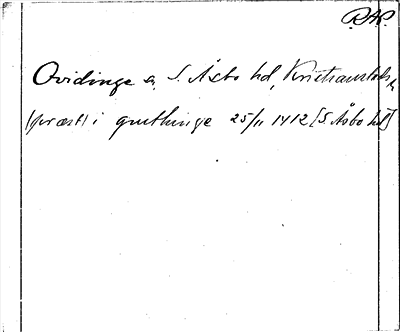 RAP.
Qvidinge sn, S. Åsbo hd, Kristianstads l.
(præst) i quithinge 25/11 1412 [S. Åsbo hd]